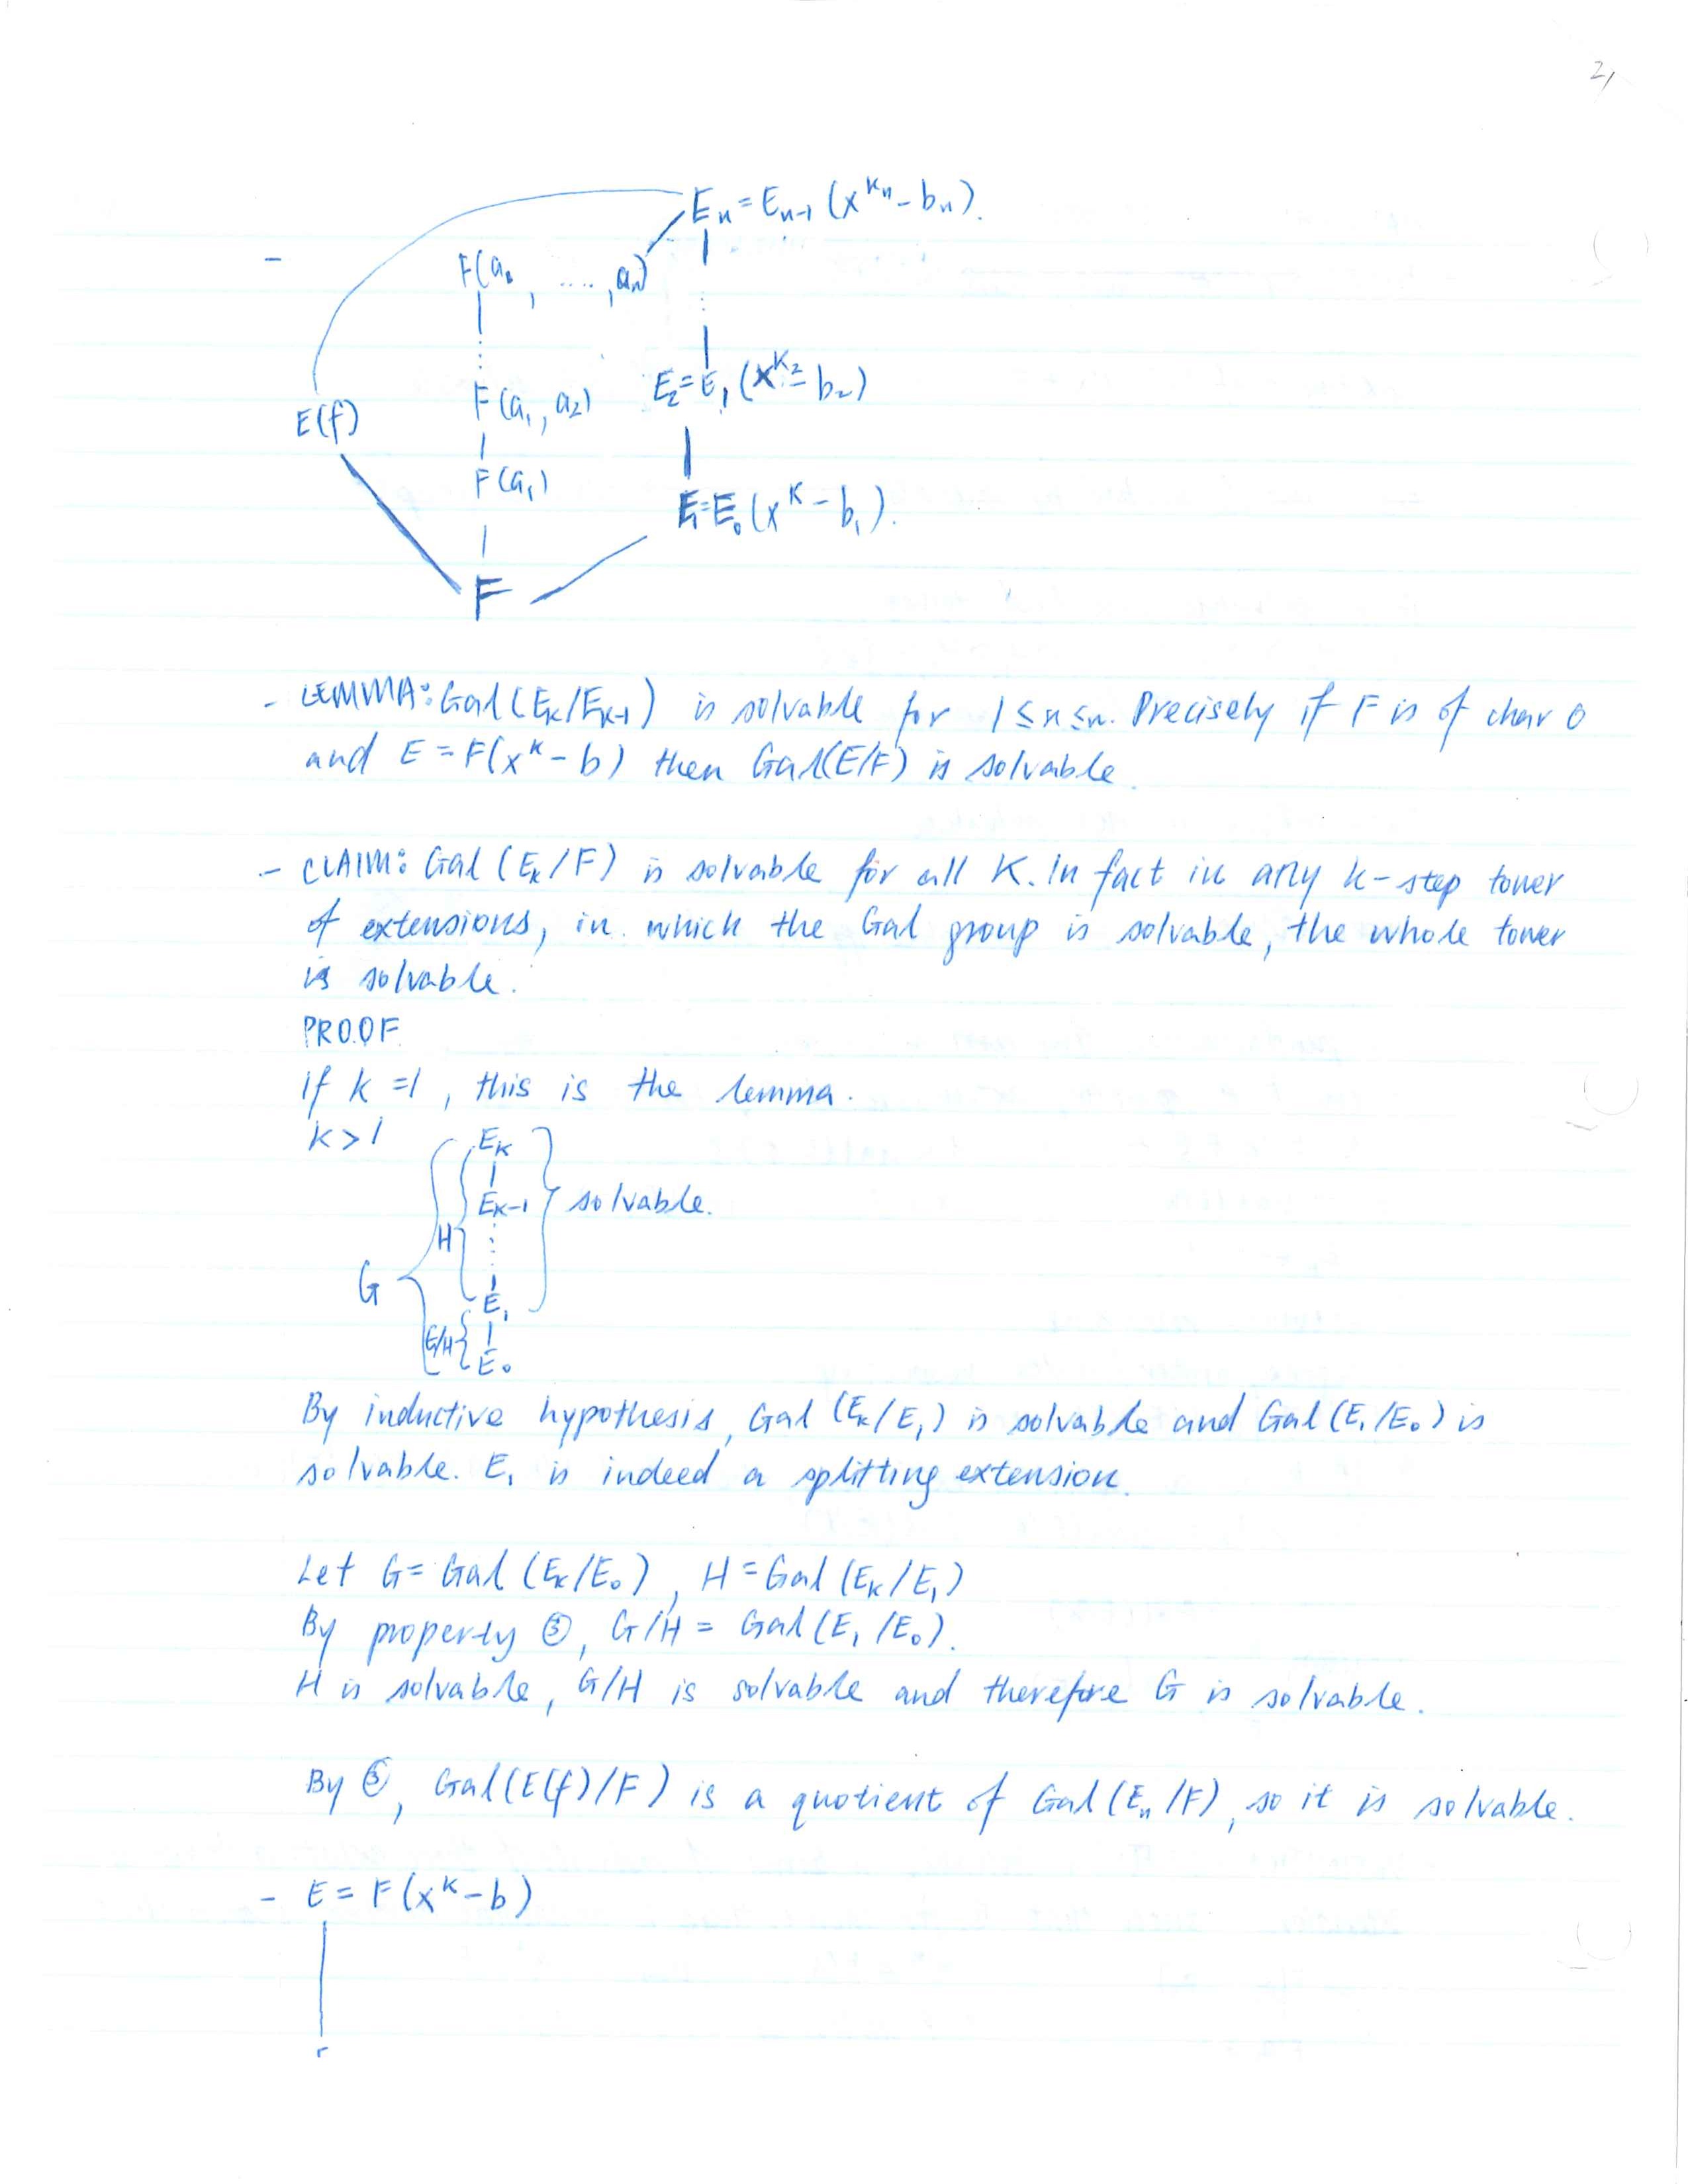 2,
E_n = E_{n-1} (x^{k_n} - b_n).
- F(a_1, ...., a_n)
F(a_1, a_2) E_2 = E_1 (x^{k_2} - b_2)
E(f)
F(a_1)
E_1 = E_0 (x^k - b_1).
F
- LEMMA: Gal (E_k/E_{k-1}) is solvable for 1 ≤ n ≤ n. Precisely if F is of char 0
and E = F(x^k - b) then Gal(E/F) is solvable.
- CLAIM: Gal (E_k/F) is solvable for all K. In fact in any k-step tower
of extensions, in which the Gal group is solvable, the whole tower
is solvable.
PROOF.
If k = 1, this is the lemma.
k > 1 E_k
E_{k-1} solvable.
H
G
E_1
G/H
E_0
By inductive hypothesis, Gal (E_k/E_1) is solvable and Gal (E_1/E_0) is
solvable. E_1 is indeed a splitting extension.
Let G = Gal (E_k/E_0), H = Gal (E_k/E_1)
By property ⑤, G/H = Gal (E_1/E_0).
H is solvable, G/H is solvable and therefore G is solvable.
By ⑤, Gal(E(f)/F) is a quotient of Gal (E_n/F), so it is solvable.
- E = F(x^k - b)